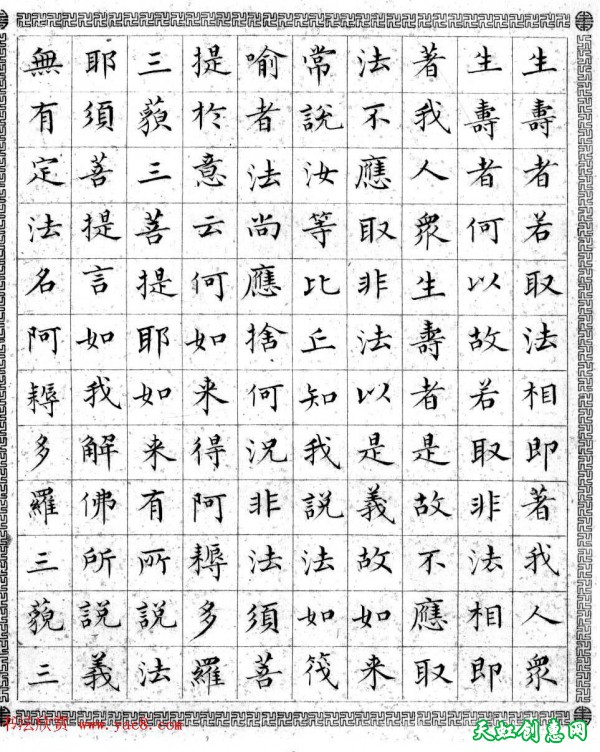 生壽者若取法相即著我人衆
生壽者何以故若取非法相即
著我人衆生壽者是故不應取
法不應取非法以是義故如来
常說汝等比丘知我說法如筏
喻者法尚應捨何況非法須菩
提於意云何如来得阿耨多羅
三藐三菩提耶如来有所說法
耶須菩提言如我解佛所說義
無有定法名阿耨多羅三藐三
书法欣赏 www.yac8.com
天虹创意网